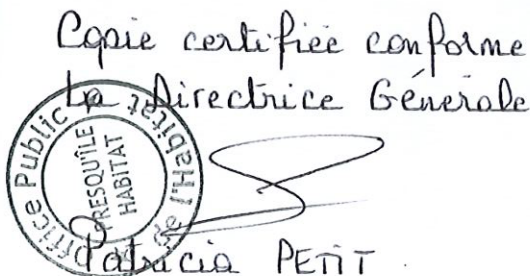 Copie certifiée conforme
La Directrice Générale
Office Public de l'Habitat
PRESQU'ÎLE
HABITAT
Patricia PETIT.